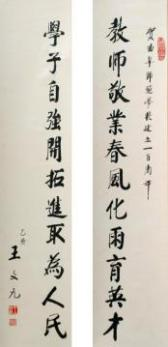 賀曲阜師範學校建立一百周年
教師敬業春風化雨育英才
學子自強開拓進取為人民
乙酉
王文元